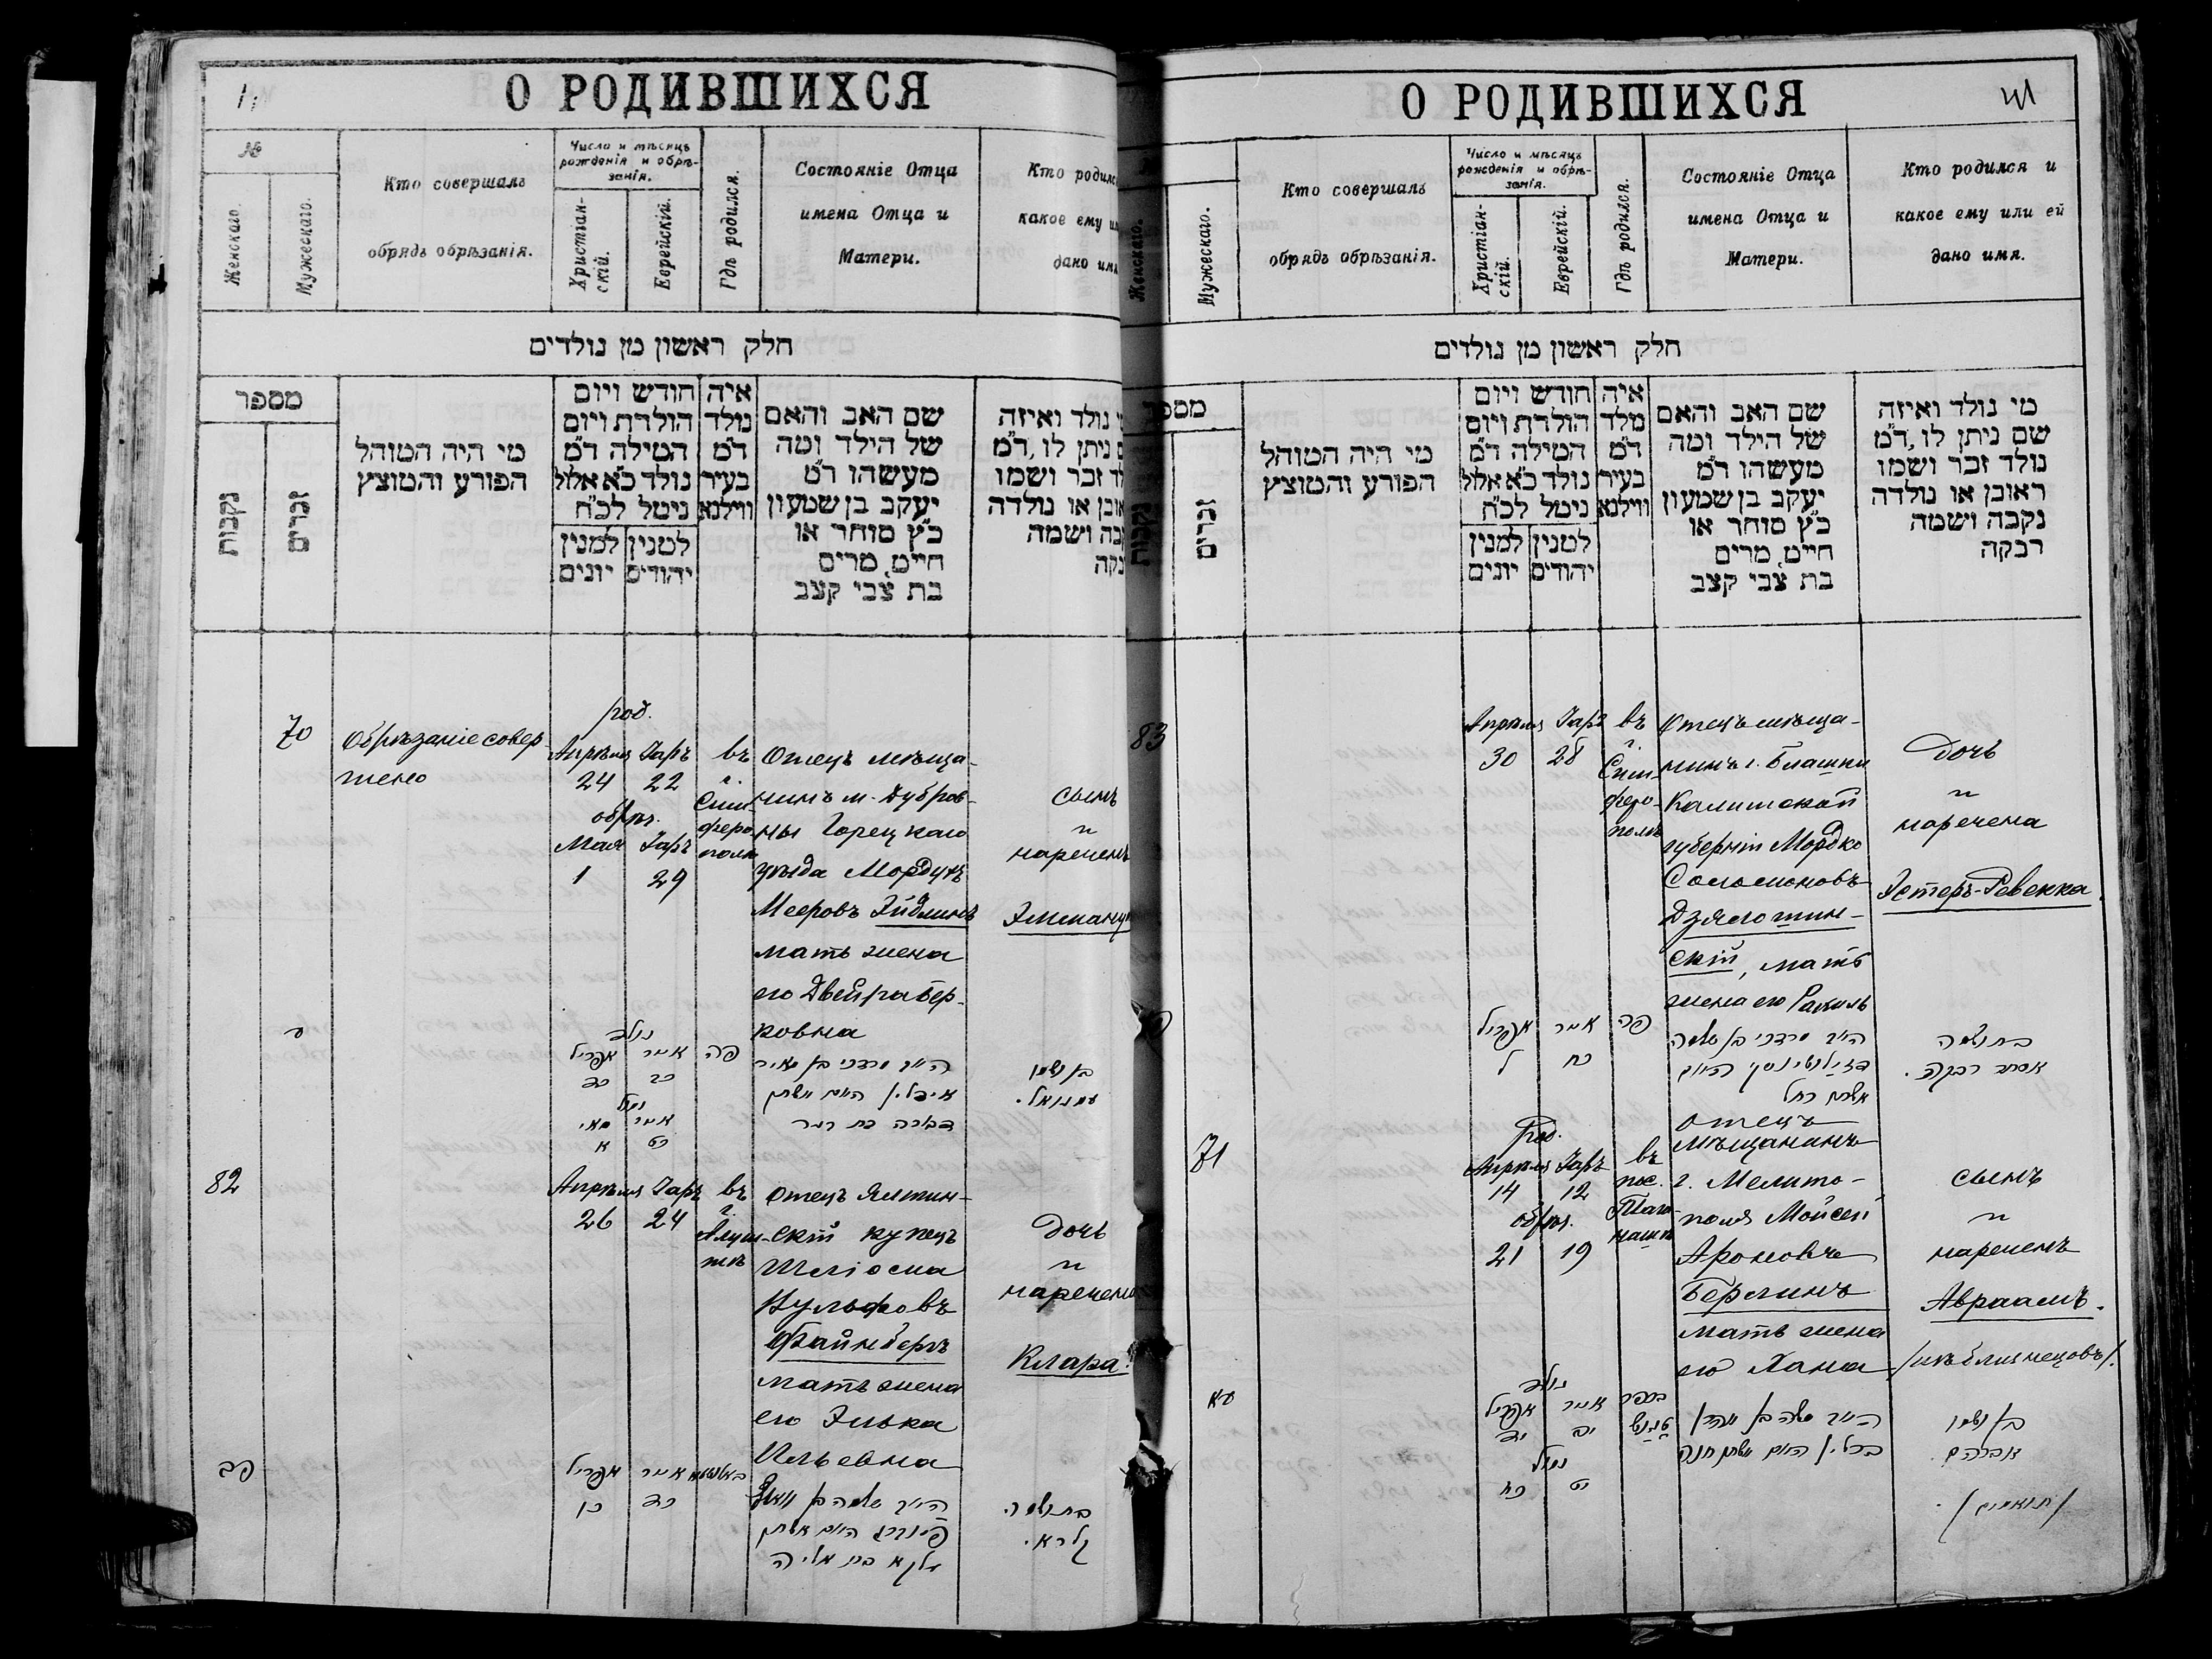 О РОДИВШИХСЯ
№
Женскаго.
Мужескаго.
Кто совершалъ
обрядъ обрѣзанія.
Число и мѣсяцъ
рожденія и обрѣ-
занія.
Христіан-
скій.
Еврейскій.
Гдѣ родился.
Состояніе Отца
имена Отца и
Матери.
Кто родился
какое ему и
дано имя
חלק ראשון מן נולדים
מספר
נקבות
זכרים
מי היה המוהל
הפורע והמוצץ
חודש ויום
הולדת ויום
המילה ד"מ
נולד כ"א אלול
נימל לכ"ח
למנין יהודים
למנין יונים
איה
נולד
ד"מ
בעיר
ווילנא
שם האב והאם
של הילד ומה
מעשהו ד"מ
יעקב בן שמעון
כ"ץ סוחר או
חייט, מרים
בת צבי קצב
נולד ואיזה
ניתן לו, ד"מ
זכר ושמו
או נולדה
ושמה
70
Обрѣзаніе совер
шено
род.
Апрѣля Іаръ
24 22
обрѣз.
Мая Іаръ
1 29
въ
г.
Сим-
феро
полѣ
Отецъ мѣща-
нинъ м. Дубров-
ны Горецкаго
уѣзда Мордухъ
Мееровъ Эйдлинъ
мать жена
его Двейра Бер-
ковна
сынъ
и
нареченъ
נולד
אפריל אייר פה
כד כב
נמול
מאי אייר
א כט
היו' מרדכי בן מאיר
אידלין היום אשתו
דבורה בת
בן ושמו
עמנואל.
82
Апрѣля Іаръ
26 24
въ
г.
Алуш-
тѣ
Отецъ Ялтин-
скій купецъ
Шліома
Вульфовъ
Файнбергъ
мать жена
его Элька
Ильевна
дочь
и
наречена
Клара.
פב
אפריל אייר
כו כד
היו' שלמה בן
פיינברג היום אשתו
עלקא בת אליה
בת ושמה
קלרא.
О РОДИВШИХСЯ
41
Женскаго.
Мужескаго.
Кто совершалъ
обрядъ обрѣзанія.
Число и мѣсяцъ
рожденія и обрѣ-
занія.
Христіан-
скій.
Еврейскій.
Гдѣ родился.
Состояніе Отца
имена Отца и
Матери.
Кто родился и
какое ему или ей
дано имя.
חלק ראשון מן נולדים
נקבות
זכרים
מי היה המוהל
הפורע והמוצץ
חודש ויום
הולדת ויום
המילה ד"מ
נולד כ"א אלול
נימל לכ"ח
למנין יהודים
למנין יונים
איה
נולד
ד"מ
בעיר
ווילנא
שם האב והאם
של הילד ומה
מעשהו ד"מ
יעקב בן שמעון
כ"ץ סוחר או
חייט, מרים
בת צבי קצב
מי נולד ואיזה
שם ניתן לו, ד"מ
נולד זכר ושמו
ראובן או נולדה
נקבה ושמה
רבקה
83
Апрѣля Іаръ
30 28
въ
г.
Сим-
феро-
полѣ
Отецъ мѣща-
нинъ г. Блашки
Калишской
губерніи Мордко
Соломоновъ
Дзялошин-
скій, мать
жена его Рахиль
дочь
и
наречена
Эстеръ-Ревекка.
אפריל אייר פה
ל כח
היו' מרדכי בן שלמה
אשתו רחל
בת ושמה
אסתר רבקה.
71
род.
Апрѣля Іаръ
14 12
обрѣз.
21 19
въ
пос.
Отецъ
мѣщанинъ
г. Мелито-
поля Мойсей
Ароновъ
Берлинъ
мать жена
его Хана
сынъ
и
нареченъ
Авраамъ.
/изъ близнецовъ/.
עא
נולד
אפריל אייר
יד יב
נמול
היו' משה בן אהרן
ברלין היום אשתו חנה
בן ושמו
אברהם.
/תואמים/.